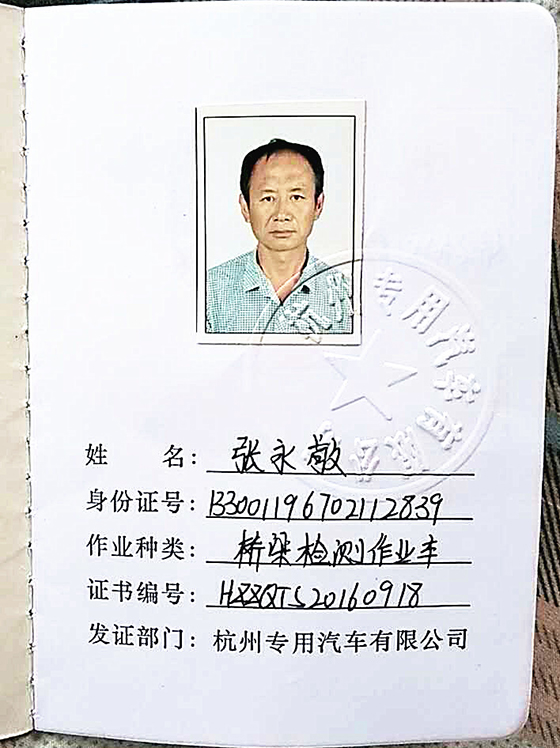 杭州专用汽车有限公司
姓 名：张永敬
身份证号：133001196702112839
作业种类：桥梁检测作业车
证书编号：HZZQTS20160918
发证部门：杭州专用汽车有限公司